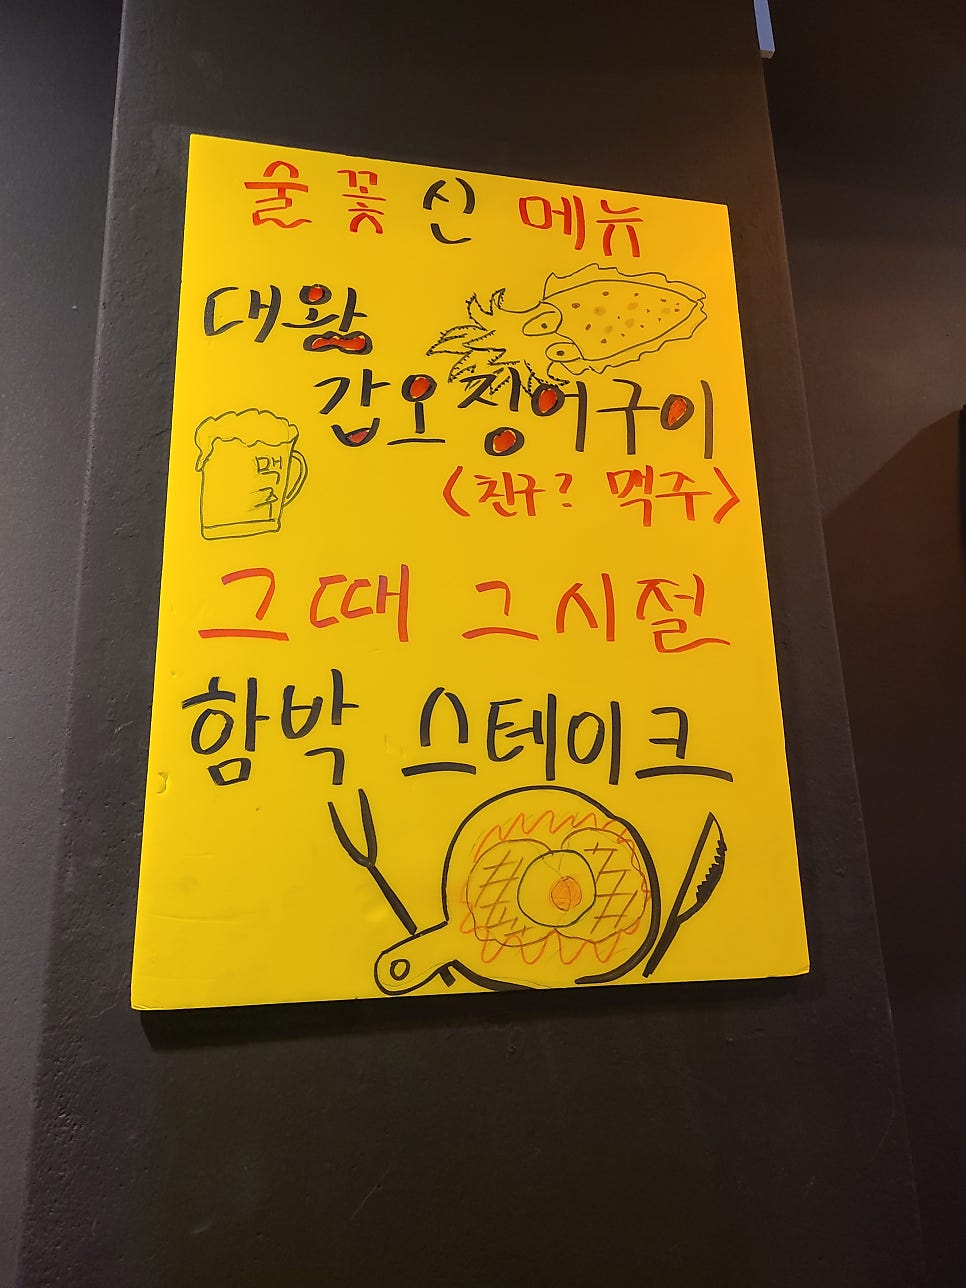 술꽃 신 메뉴
대왕
갑오징어구이
맥
주
<친구? 맥주>
그때 그시절
함박 스테이크